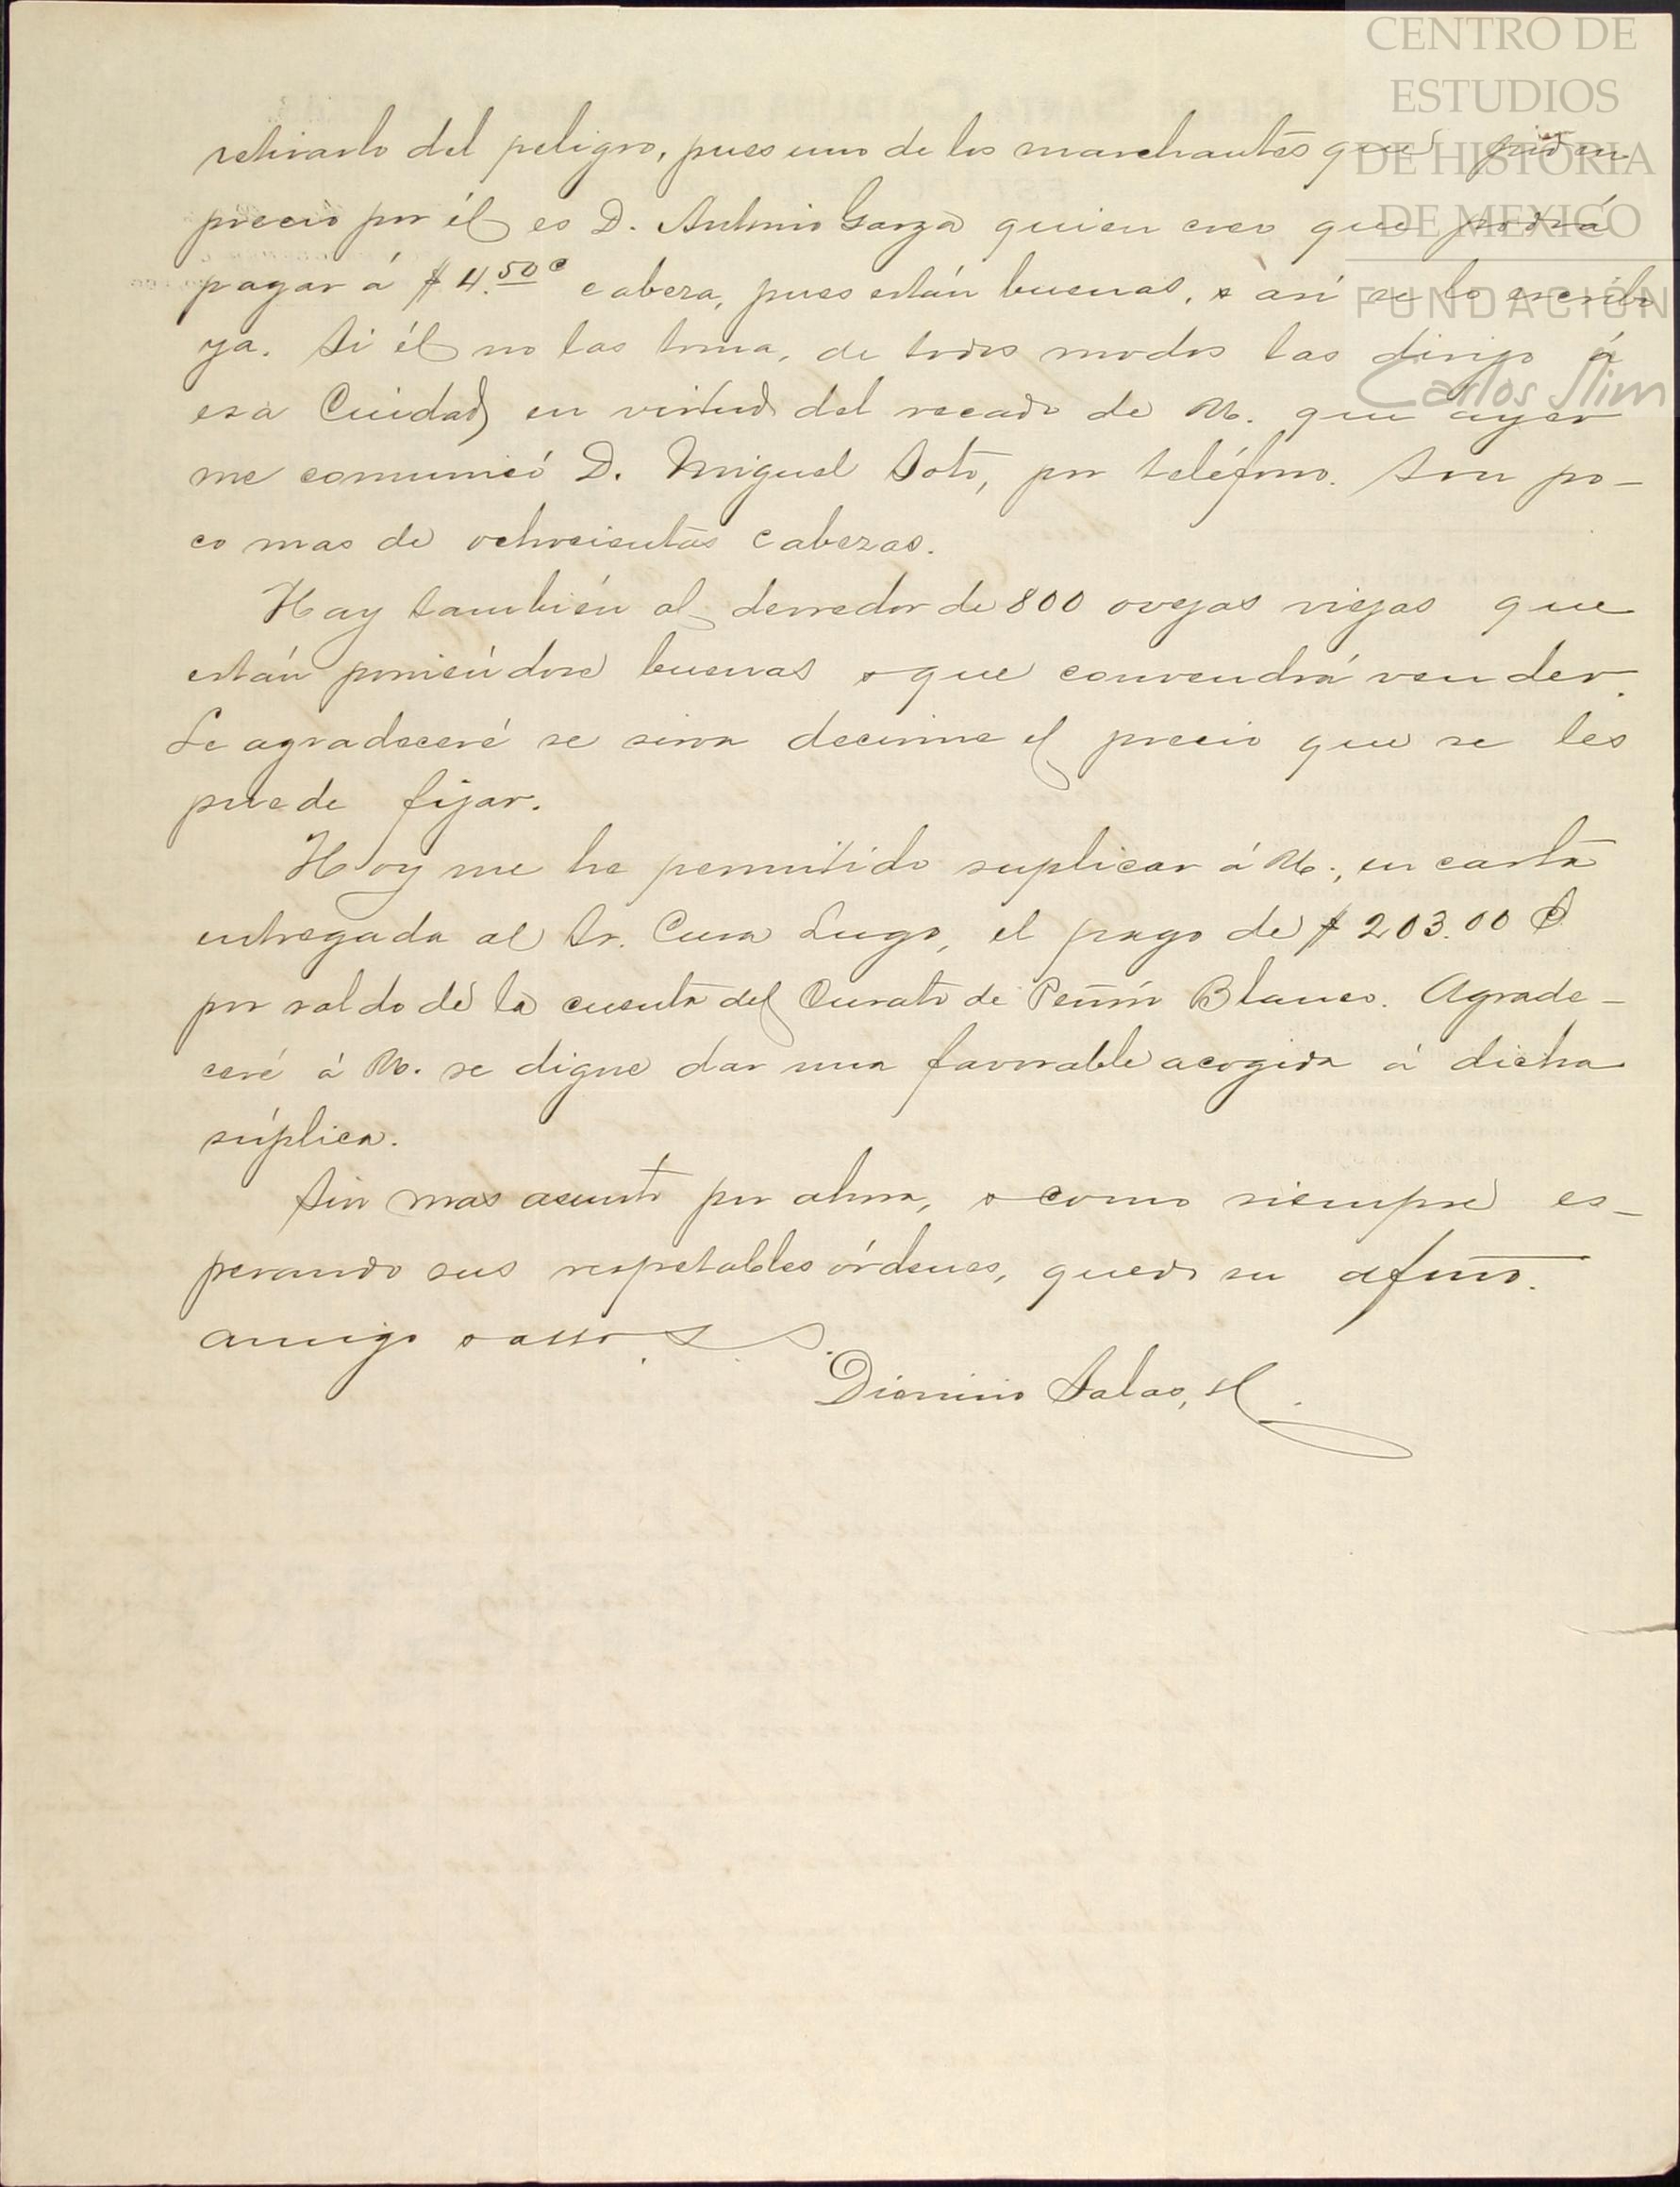 CENTRO DE
ESTUDIOS
DE HISTORIA
DE MEXICO
FUNDACIÓN
Carlos Slim
retirarlo del peligro, pues uno de los marchantes que piden
precio por él es D. Antonio Garza quien creo que podrá
pagar á $4.50 c cabeza, pues están buenas, y así se lo escribí
ya. Si él no las toma, de todos modos las dirijo á
esa Ciudad en virtud del recado de U. que ayer
me comunicó D. Miguel Soto, por teléfono. Son po-
co mas de ochocientas cabezas.
Hay también al derredor de 800 ovejas viejas que
están poniéndose buenas y que convendrá vender.
Le agradeceré se sirva decirme el precio que se les
puede fijar.
Hoy me he permitido suplicar á U., en carta
entregada al Sr. Cura Lugo, el pago de $203.00 c
por saldo de la cuenta del Curato de Peñón Blanco. Agrade-
ceré á U. se digne dar una favorable acogida á dicha
súplica.
Sin mas asunto por ahora, y como siempre es-
perando sus respetables órdenes, quedo su afmo.
amigo y atto. S. S.
Dionisio Salas, H.